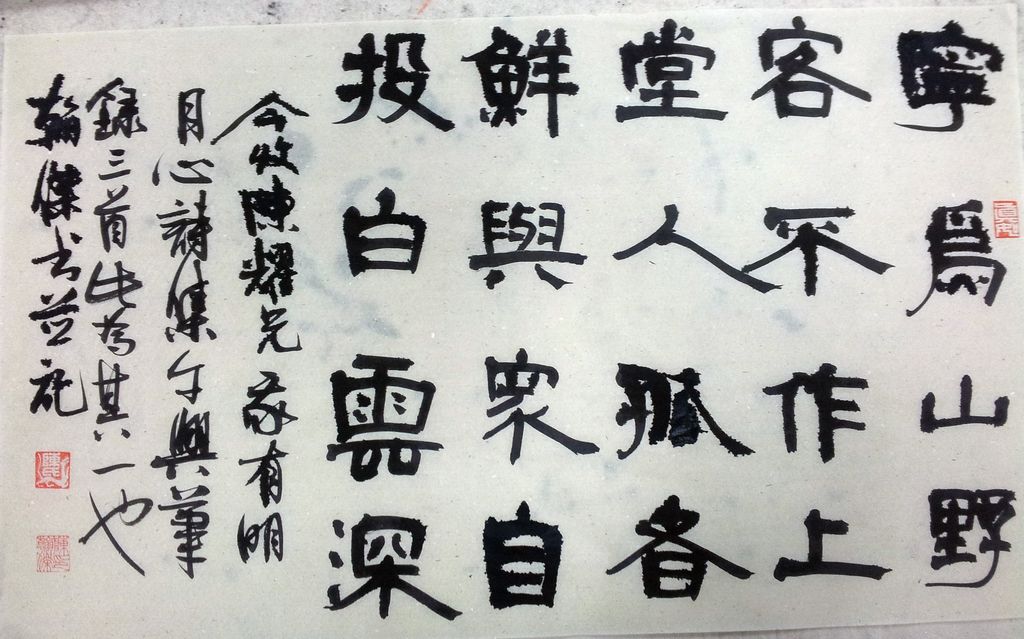 寧為山野
客不作上
堂人孤者
鮮與眾自
投白雲深
今收陳耀兄家有明
月心詩集乍興筆
錄三首此為其一也
翰傑书並記